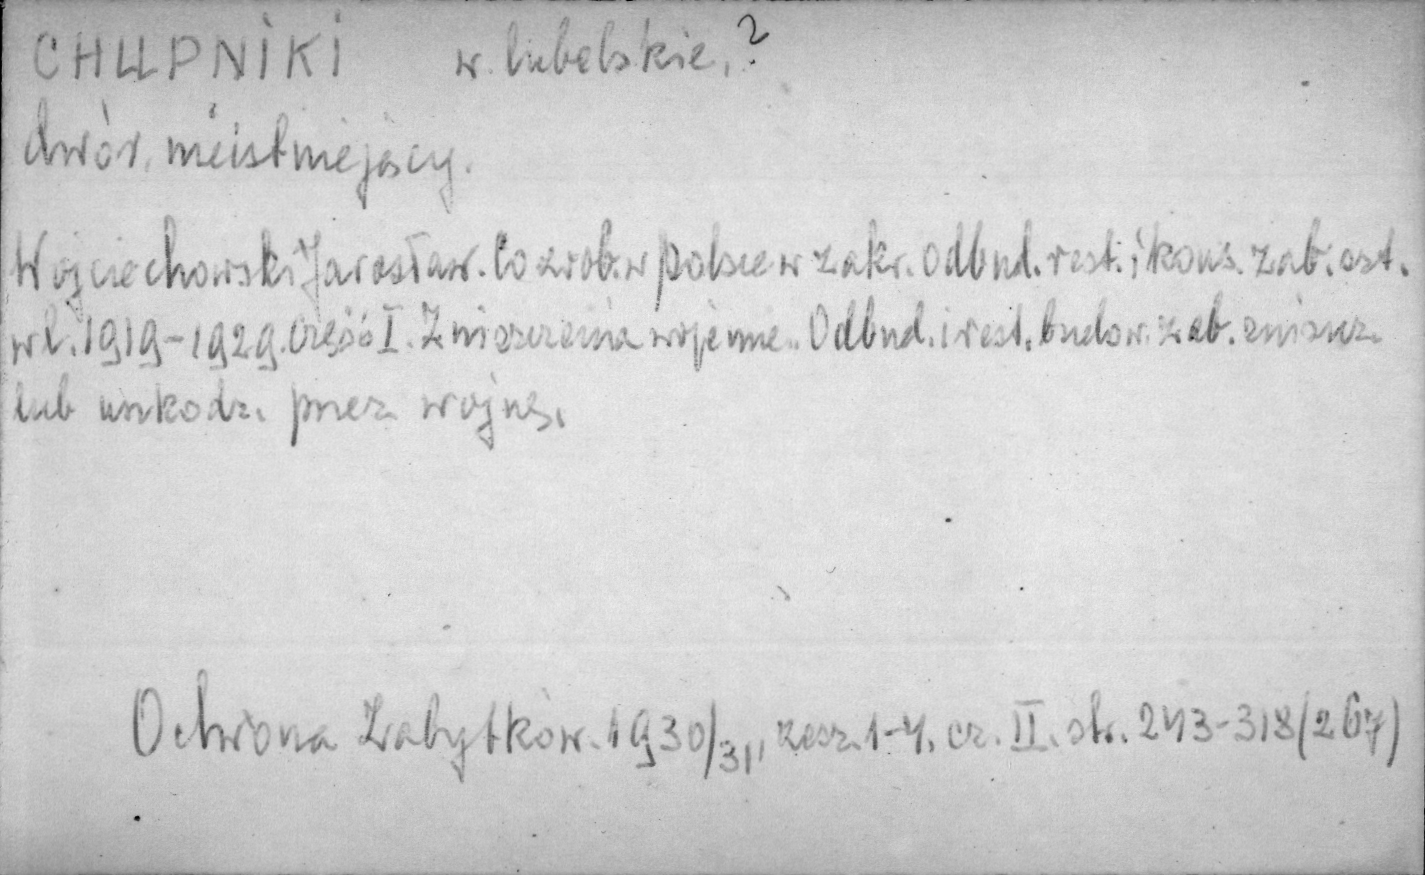 CHUPNIKI w. lubelskie, ?
dwór, nieistniejący.
Wojciechowski Jarosław. Co zrob. w Polsce w zakr. odbud. rest. i kons. zab. ost.
w l. 1919-1929. Część I. Zniszczenia wojenne. Odbud. i rest. budow. zab. zniszcz.
lub uszkodz. przez wojnę.
Ochrona Zabytków. 1930/31, zesz. 1-4. cz. II. str. 243-318 (267)